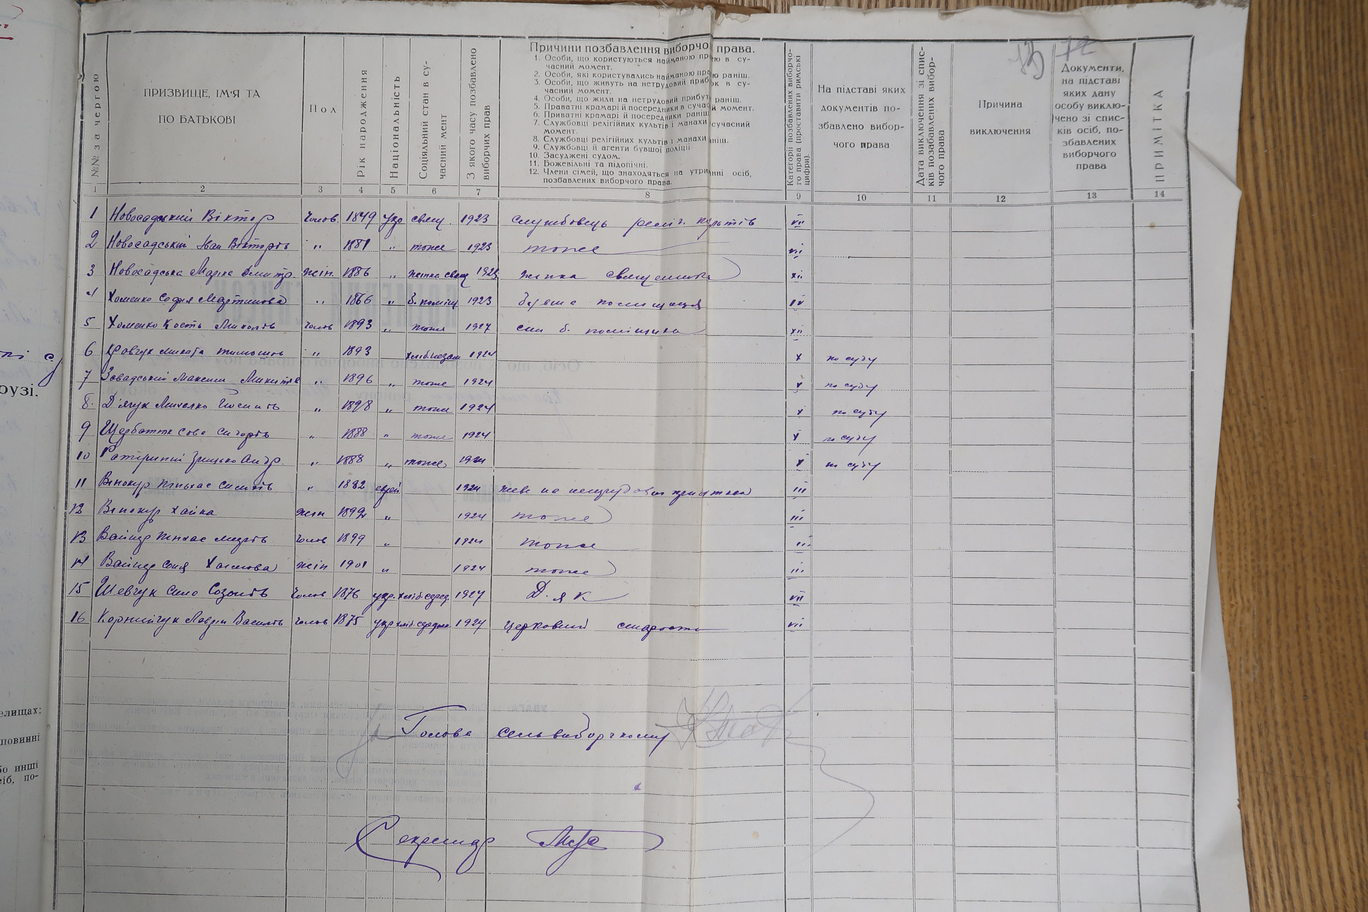 13 72
№№ за чергою
ПРИЗВИЩЕ, ІМ'Я ТА ПО БАТЬКОВІ
Пол
Рік народження
Національність
Соціяльний стан в сучасний мент
З якого часу позбавлено виборчих прав
Причини позбавлення виборчого права.
1. Особи, що користуються найманою працею в сучасний момент.
2. Особи, які користувались найманою працею раніш.
3. Особи, що живуть на нетрудовий прибуток в сучасний момент.
4. Особи, що жили на нетрудовий прибуток раніш.
5. Праватні крамарі й посередники в сучасний момент.
6. Приватні крамарі й посередники раніш.
7. Службовці релігійних культів і манахи в сучасний момент.
8. Службовці релігійних культів і манахи раніш.
9. Службовці й агенти бувшої поліції.
10. Засуджені судом.
11. Божевільні та підопічні.
12. Члени сімей, що знаходяться на утриманні осіб, позбавлених виборчого права.
Категорії позбавлених виборчого права (проставити римські цифри).
На підставі яких документів позбавлено виборчого права
Дата виключення зі списків позабавлених виборчого права
Причина виключення
Документи, на підставі яких дану особу виключено зі списків осіб, позбавлених виборчого права
ПРИМІТКА
1 2 3 4 5 6 7 8 9 10 11 12 13 14
1 Новосадський Віктор чолов 1849 укр свящ. 1923 службовець реліг. культів VII
2 Новосадський Іван Вікторов „ 1881 „ тоже 1923 тоже VII
3 Новосадська Марія Дмитр. жін. 1886 „ жінка свящ 1923 жінка священика XII
4 Хоменко Софія Мартинова „ 1866 „ б. поміщ 1923 IV
5 Хоменко Кость чолов 1893 „ тоже 1927 син б. поміщика XII
6 Микола „ 1893 хлібороб 1924 X по суду
7 Завадський Максим Микитов „ 1896 „ тоже 1924 X по суду
8. Д'ячук Михалко Йосипов „ 1898 „ тоже 1924 X по суду
9 Щербатюк Сава „ 1888 „ тоже 1924 X по суду
10 Грицько Андр. „ 1888 „ тоже 1924 X по суду
11 Вінокур Пінхас „ 1882 еврей 1924 живе на нетрудовий прибуток III
12 Вінокур Хайка жін 1892 „ 1924 тоже III
13 Вайнер чолов 1899 „ 1924 тоже III
14 Вайнер Соня жін 1901 „ 1924 тоже III
15 Шевчук Сава Созонів чолов 1876 укр. хліб серед. 1927 Д'як VII
16 Корнійчук Лаврін Василів чолов 1875 укр хліб середн. 1927 церковний староста VII
Голова сельвиборчкому
Секретар
оузі.
елищах:
повинні
бо инші
сіб, по-